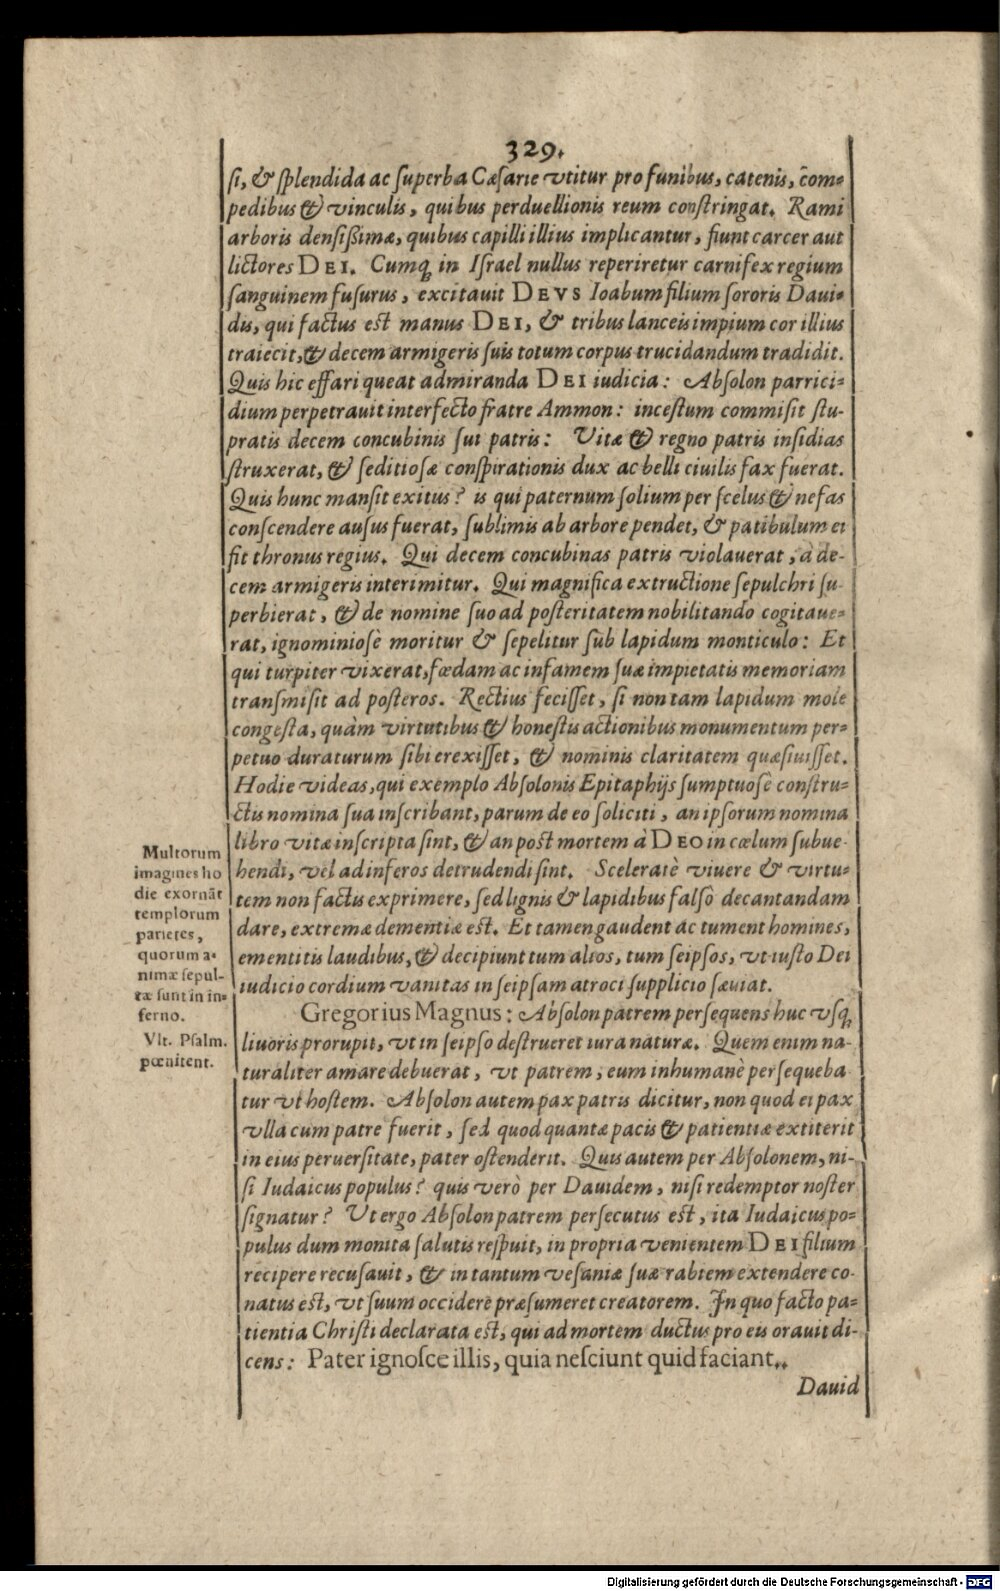 329.
ſi, & ſplendida ac ſuperba Cæſarie vtitur pro funibus, catenis, com-
pedibus & vinculis, quibus perduellionis reum conſtringat. Rami
arboris denſißimæ, quibus capilli illius implicantur, fiunt carcer aut
lictores DEI. Cumq́ in Iſrael nullus reperiretur carnifex regium
ſanguinem fuſurus, excitauit DEVS Ioabum filium ſororis Daui-
dis, qui factus eſt manus DEI, & tribus lanceis impium cor illius
traiecit, & decem armigeris ſuis totum corpus trucidandum tradidit.
Quis hic effari queat admiranda DEI iudicia: Abſolon parrici-
dium perpetrauit interfecto fratre Ammon: inceſtum commiſit ſtu-
pratis decem concubinis ſui patris: Vitæ & regno patris inſidias
ſtruxerat, & ſeditioſæ conſpirationis dux ac belli ciuilis fax fuerat.
Quis hunc manſit exitus? is qui paternum ſolium per ſcelus & nefas
conſcendere auſus fuerat, ſublimis ab arbore pendet, & patibulum ei
fit thronus regius. Qui decem concubinas patris violauerat, à de-
cem armigeris interimitur. Qui magnifica extructione ſepulchri ſu-
perbierat, & de nomine ſuo ad poſteritatem nobilitando cogitaue-
rat, ignominioſè moritur & ſepelitur ſub lapidum monticulo: Et
qui turpiter vixerat, fœdam ac infamem ſuæ impietatis memoriam
tranſmiſit ad poſteros. Rectius feciſſet, ſi non tam lapidum mole
congeſta, quàm virtutibus & honeſtis actionibus monumentum per-
petuo duraturum ſibi erexiſſet, & nominis claritatem quæſiuiſſet.
Hodie videas, qui exemplo Abſolonis Epitaphijs ſumptuoſè conſtru-
ctis nomina ſua inſcribant, parum de eo ſoliciti, an ipſorum nomina
libro vitæ inſcripta ſint, & an poſt mortem à DEO in cœlum ſubue-
hendi, vel ad inferos detrudendi ſint. Sceleratè viuere & virtu-
tem non factis exprimere, ſed lignis & lapidibus falſò decantandam
dare, extremæ dementiæ eſt. Et tamen gaudent ac tument homines,
ementitis laudibus, & decipiunt tum alios, tum ſeipſos, vt iuſto Dei
iudicio cordium vanitas in ſeipſam atroci ſupplicio ſæuiat.
Multorum
imagines ho
die exornāt
templorum
parietes,
quorum a-
nimæ ſepul-
tæ ſunt in in-
ferno.
Gregorius Magnus: Abſolon patrem perſequens huc vſq́
liuoris prorupit, vt in ſeipſo deſtrueret iura naturæ. Quem enim na-
turaliter amare debuerat, vt patrem, eum inhumanè perſequeba
tur vt hoſtem. Abſolon autem pax patris dicitur, non quod ei pax
vlla cum patre fuerit, ſed quod quantæ pacis & patientiæ extiterit
in eius peruerſitate, pater oſtenderit. Quis autem per Abſolonem, ni-
ſi Iudaicus populus? quis verò per Dauidem, niſi redemptor noſter
ſignatur? Vt ergo Abſolon patrem perſecutus eſt, ita Iudaicus po-
pulus dum monita ſalutis reſpuit, in propria venientem DEI filium
recipere recuſauit, & in tantum veſaniæ ſuæ rabiem extendere co-
natus eſt, vt ſuum occidere præſumeret creatorem. In quo facto pa-
tientia Chriſti declarata eſt, qui ad mortem ductus pro eis orauit di-
cens: Pater ignoſce illis, quia neſciunt quid faciant..
Vlt. Pſalm.
pœnitent.
Dauid
Digitalisierung gefördert durch die Deutsche Forschungsgemeinschaft - DFG